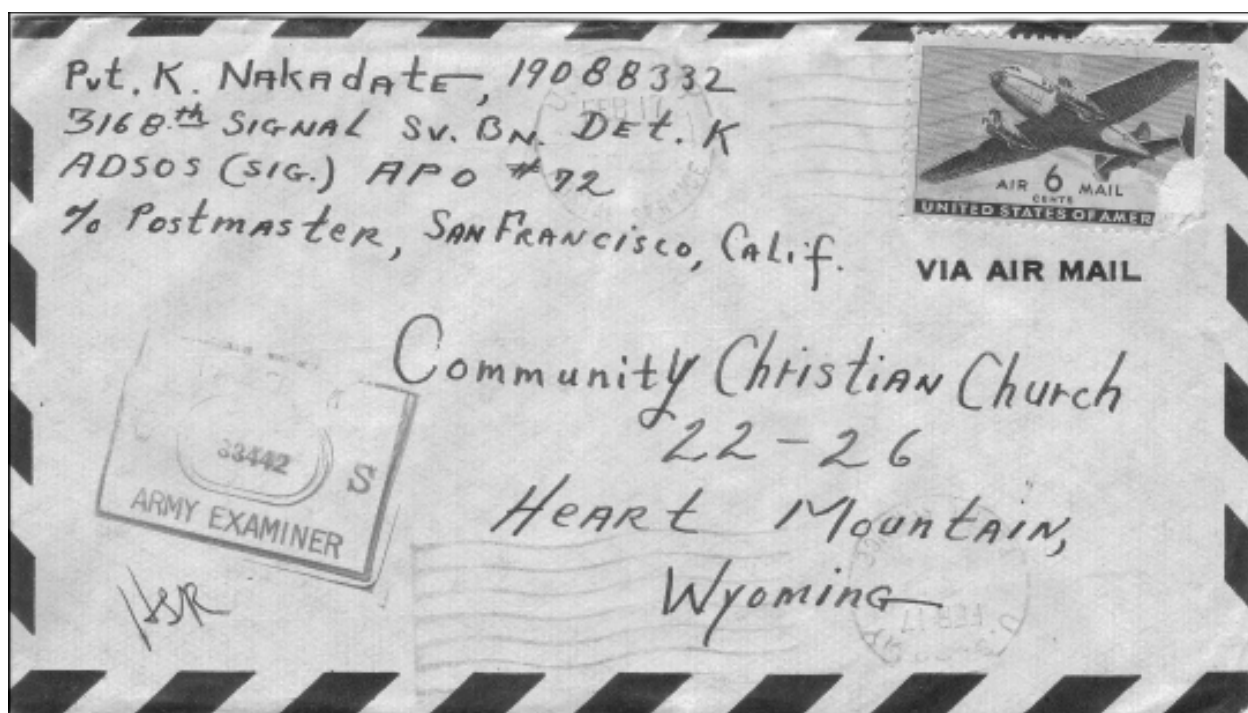 Pvt. K. Nakadate, 19088332
3168th Signal Sv. Bn. Det. K
ADSOS (SIG.) APO # 72
% Postmaster, San Francisco, Calif.
AIR 6 MAIL
CENTS
UNITED STATES OF AMER
VIA AIR MAIL
Community Christian Church
22-26
Heart Mountain,
Wyoming
S
ARMY EXAMINER